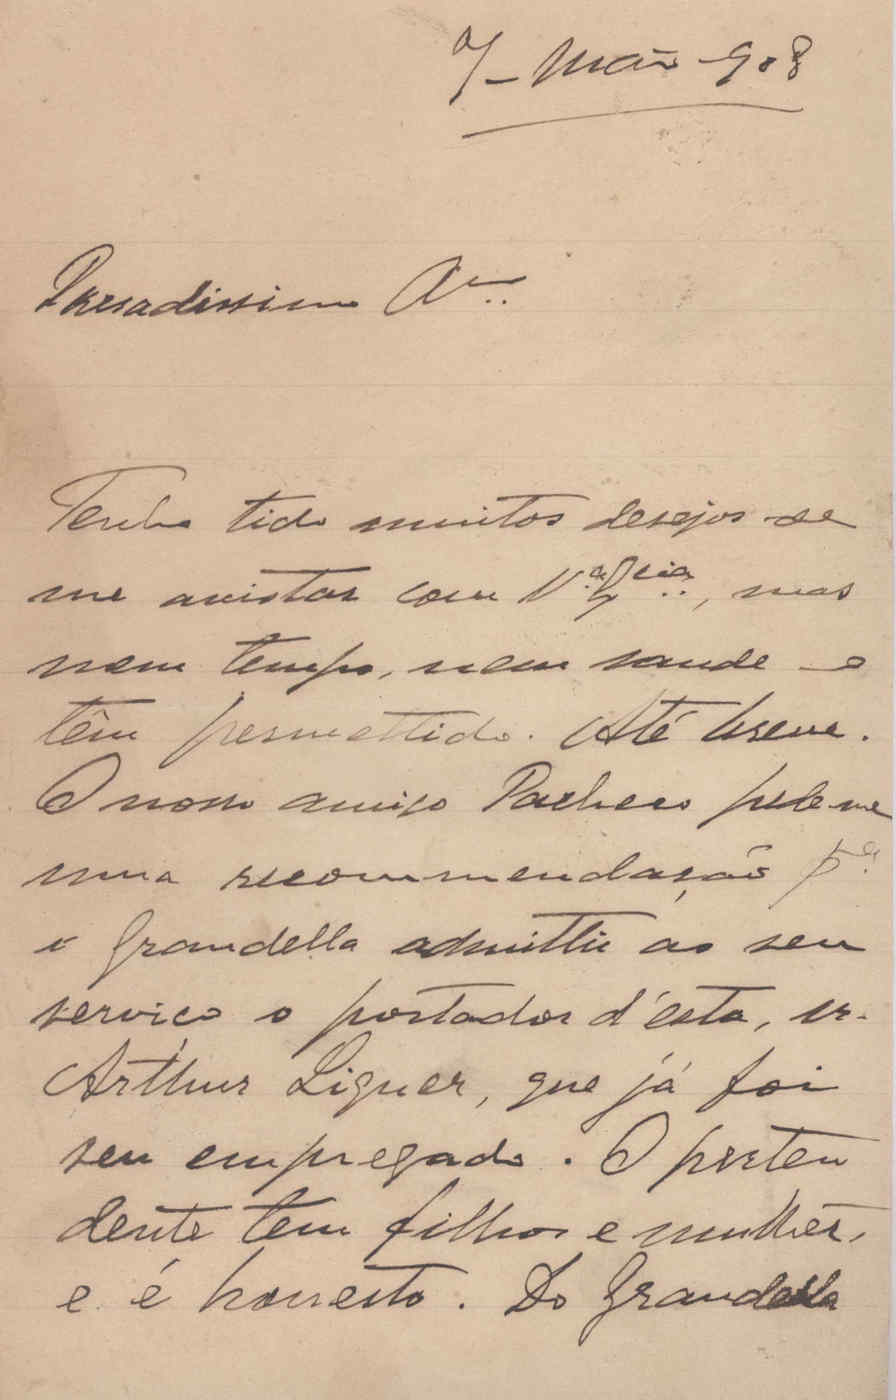 7 - Maio - 908
Presadissimo Am.º
Tenho tido muitos desejos de
me avistar com V.ª Ex.cia, mas
nem tempo, nem saude o
têm permettido. Até breve.
O nosso amigo Pacheco pede-me
uma recommendação p.ª
o Grandella admittir ao seu
serviço o portador d'esta, sr.
Arthur Liguer, que já foi
seu empregado. O perten
dente tem filhos e mulhér,
e é honesto. Do Grandella